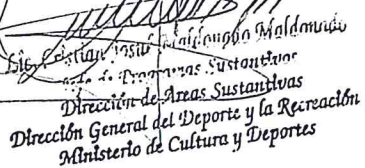 Lic. Cristian Josué Maldonado Maldonado
de Programas Sustantivos
Dirección de Áreas Sustantivas
Dirección General del Deporte y la Recreación
Ministerio de Cultura y Deportes